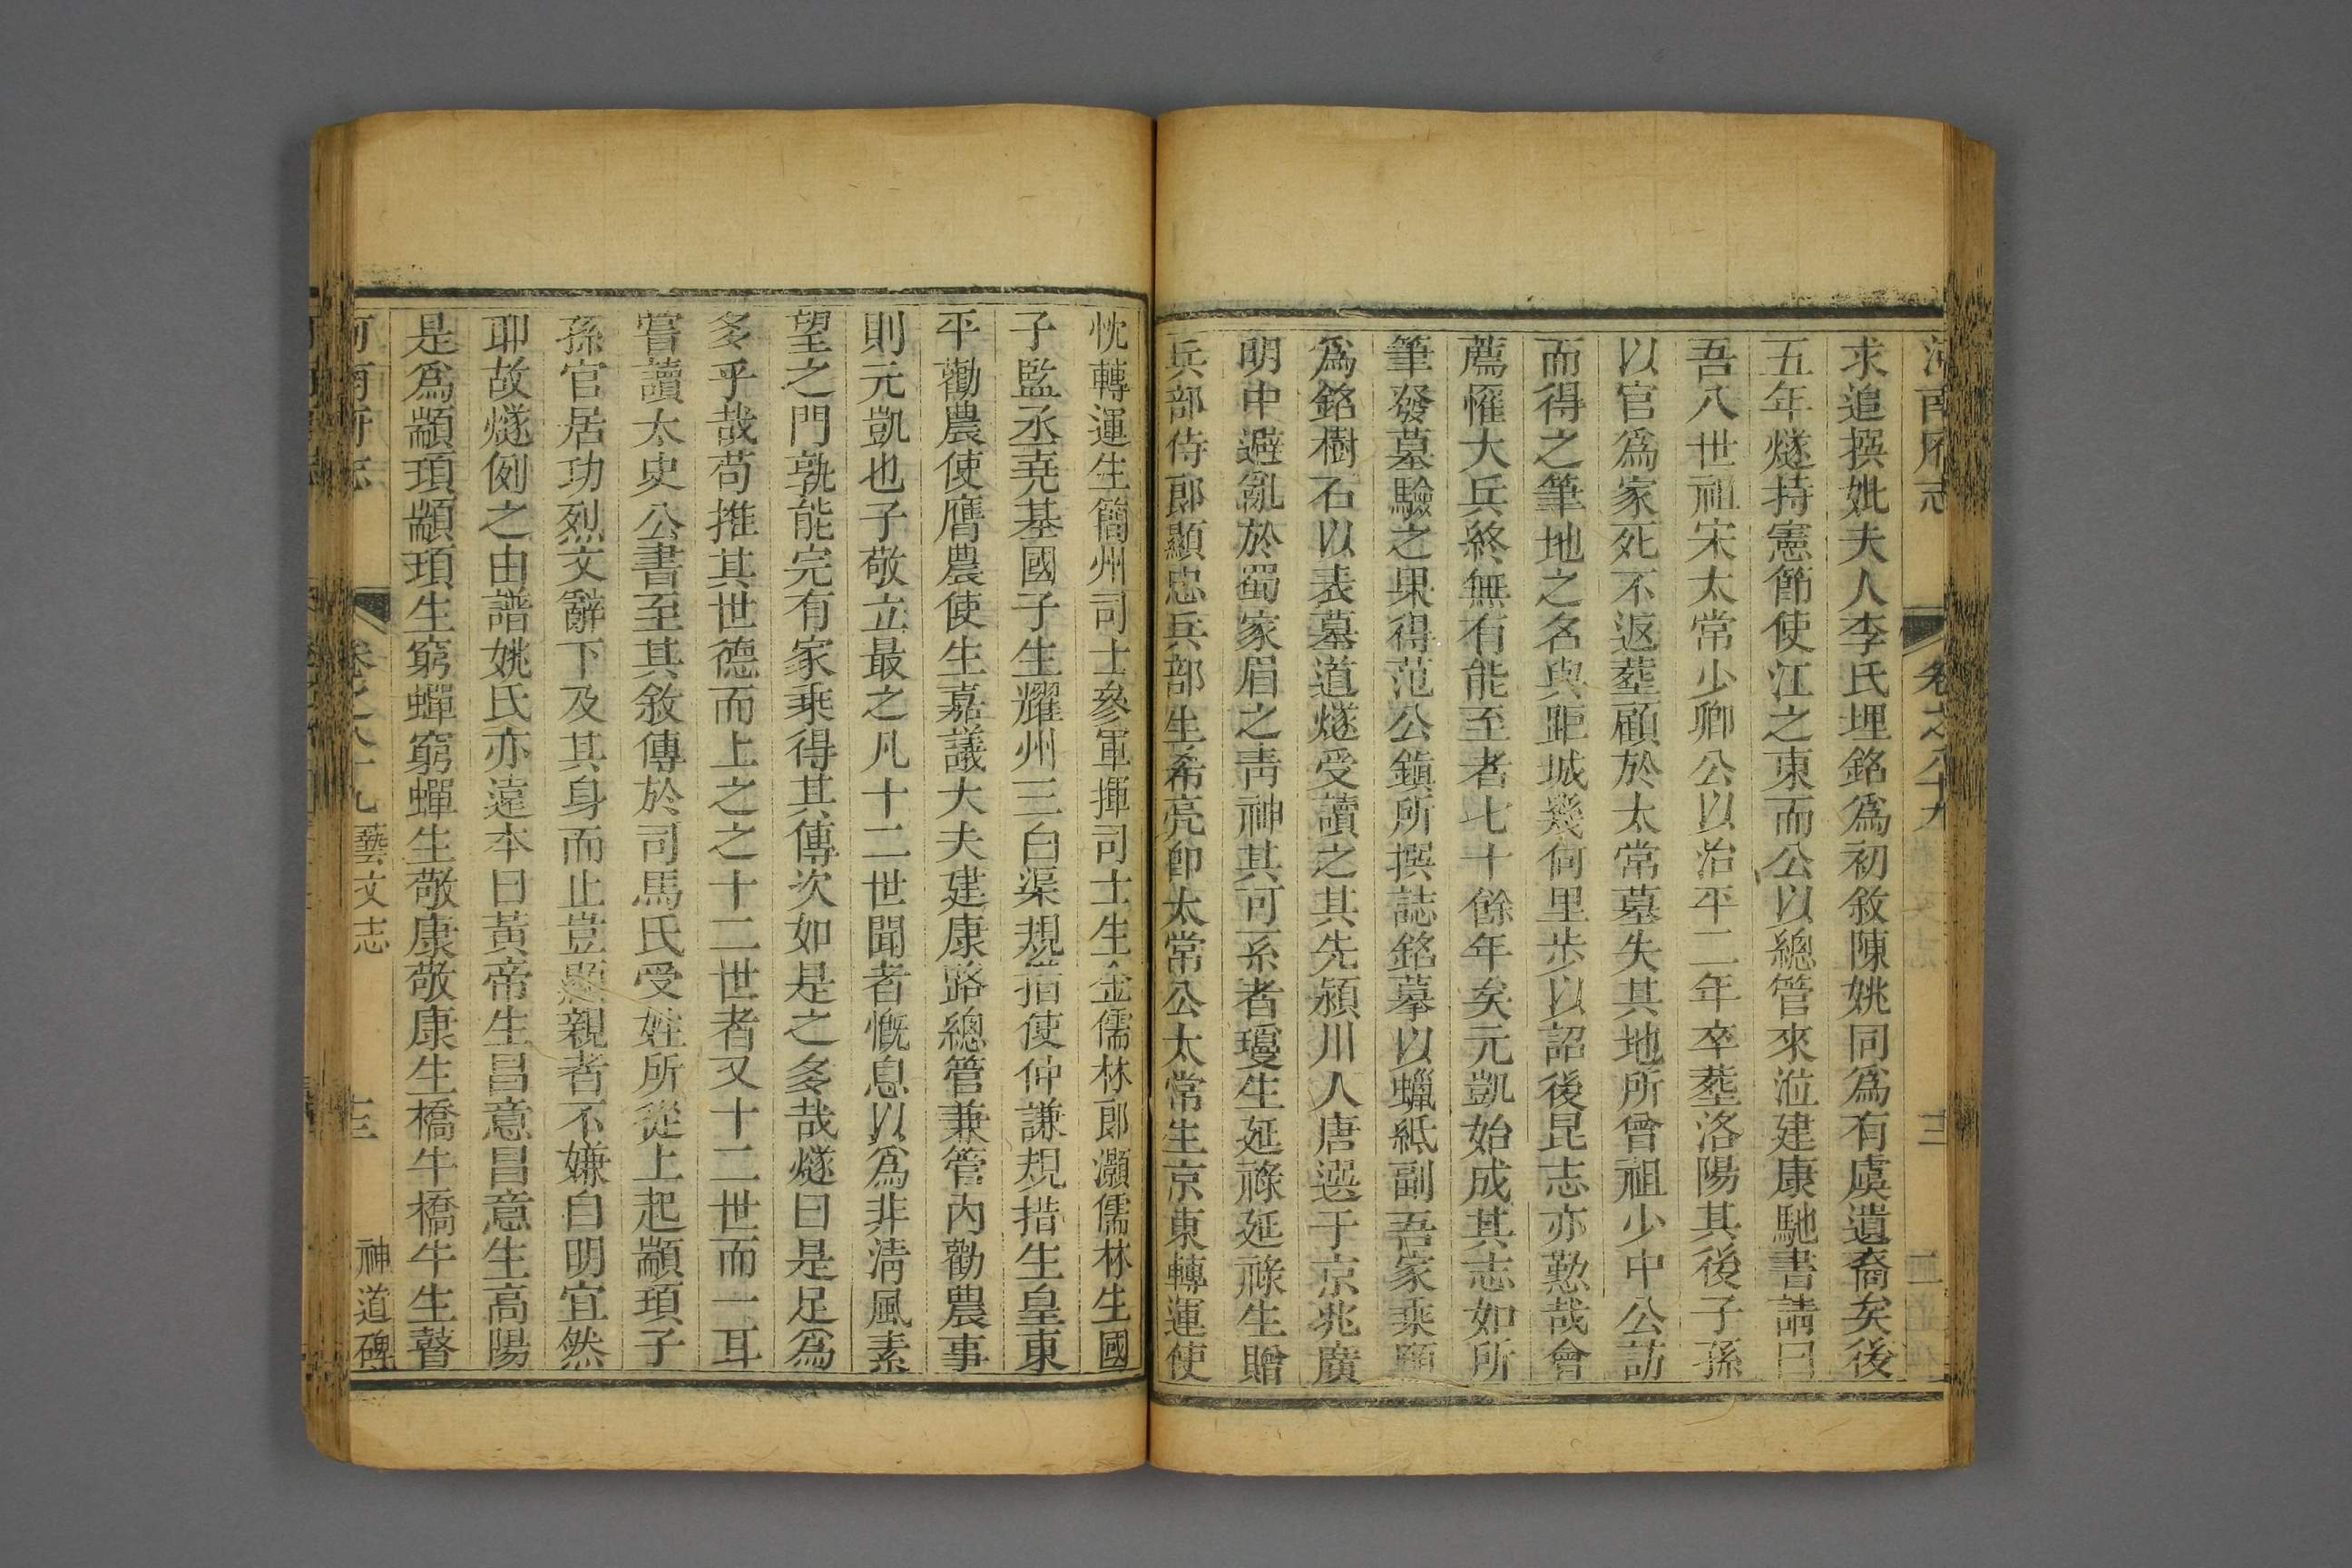 求追撰妣夫人李氏埋銘爲初敘陳姚同爲有虞遺裔矣後
五年燧持憲節使江之東而公以總管來涖建康馳書請曰
吾八世祖宋太常少卿公以治平二年卒葬洛陽其後子孫
以官爲家死不返葬顧於太常墓失其地所曾祖少中公訪
而得之筆地之名與距城幾何里步以詔後昆志亦懃哉會
薦懼大兵終無有能至者七十餘年矣元凱始成其志如所
筆發墓驗之果得范公鎮所撰誌銘摹以蠟紙副吾家乘願
爲銘樹石以表墓道燧受讀之其先潁川人唐選于京兆廣
明中避亂於蜀家眉之靑神其可系者瓊生延祿延祿生贈
兵部侍郎顯忠兵部生希亮卽太常公太常生京東轉運使
忱轉運生簡州司士參軍揮司士生金儒林郎灝儒林生國
子監丞堯基國子生耀州三白渠規措使仲謙規措生皇東
平勸農使膺農使生嘉議大夫建康路總管兼管內勸農事
則元凱也子敬立最之凡十二世聞者慨息以爲非淸風素
望之門孰能完有家乘得其傳次如是之多哉燧曰是足爲
多乎哉苟推其世德而上之之十二世者又十二世而一耳
嘗讀太史公書至其敘傳於司馬氏受姓所從上起顓頊子
孫官居功烈文辭下及其身而止豈親者不嫌自明宜然
耶故燧例之由譜姚氏亦遠本曰黃帝生昌意昌意生高陽
是爲顓頊顓頊生窮蟬窮蟬生敬康敬康生橋牛橋牛生瞽
河南府志 卷之八十九 藝文志 神道碑